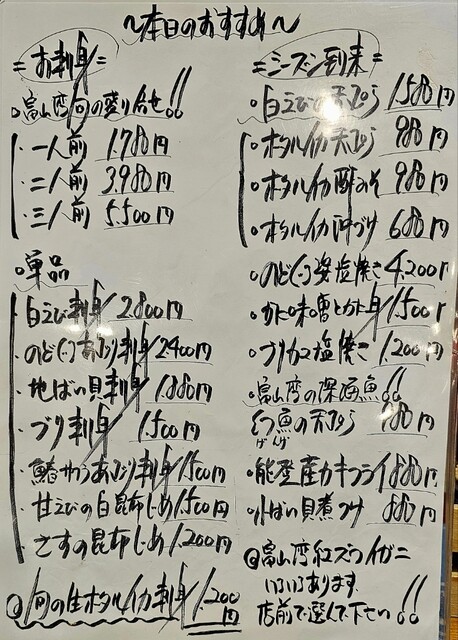 〜本日のおすすめ〜
=お刺身=
富山湾旬の盛り合せ!!
・一人前 1.780円
・二人前 3.980円
・三人前 5.500円
単品
白えび刺身 2.800円
のど(・)あぶり刺身 2.400円
地ばい貝刺身 1.880円
ブリ刺身 1.500円
鰆サワラあぶり刺身 1.500円
甘えびの白昆布じめ 1.500円
さすの昆布じめ 1.200円
旬の生ホタルイカ刺身 1.200円
=シーズン到来=
白えびの天ぷら 1.580円
ホタルイカ天ぷら 980円
ホタルイカ酢みそ 980円
ホタルイカ沖づけ 680円
のど(・)姿塩焼き 4.200円
かに味噌とかに身 1.500
ブリカマ塩焼き 1.200円
富山湾の深海魚!!
幻魚の天ぷら 980円
げんげ
能登産カキフライ 880円
小ばい貝煮つけ 880円
富山湾紅ズワイガニ
いろいろあります
店前で選んで下さい!!